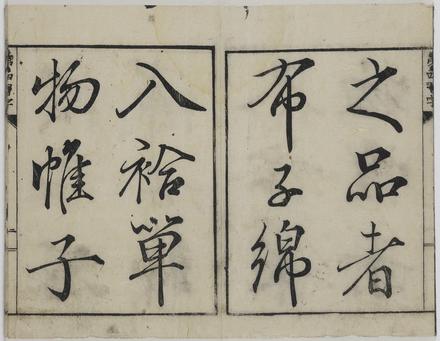 之品者
布子綿
入袷単
物帷子